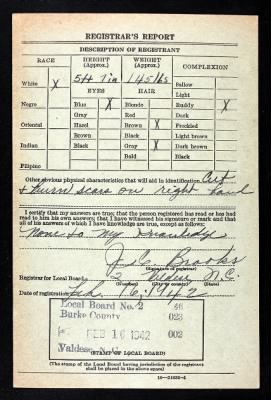 REGISTRAR'S REPORT
DESCRIPTION OF REGISTRANT
RACE
HEIGHT (Approx.)
WEIGHT (Approx.)
COMPLEXION
5ft 7in
145 lbs
Sallow
White X
EYES
HAIR
Light
Negro
Blue X
Blonde
Ruddy X
Gray
Red
Dark
Oriental
Hazel
Brown X
Freckled
Brown
Black
Light brown
Indian
Black
Gray X
Dark brown
Bald
Black
Filipino
Other obvious physical characteristics that will aid in identification Cut
& burn scars on right hand
I certify that my answers are true; that the person registered has read or has had
read to him his own answers; that I have witnessed his signature or mark and that
all of his answers of which I have knowledge are true, except as follows:
None to my Knowledge
Brooks
(Signature of registrar)
Registrar for Local Board 2 N.C.
(Number) (City or county) (State)
Date of registration Feb. 16, 1942
Local Board No. 2 46
Burke County 023
FEB 16 1942 002
Valdese, N.C.
(STAMP OF LOCAL BOARD)
(The stamp of the Local Board having jurisdiction of the registrant
shall be placed in the above space)